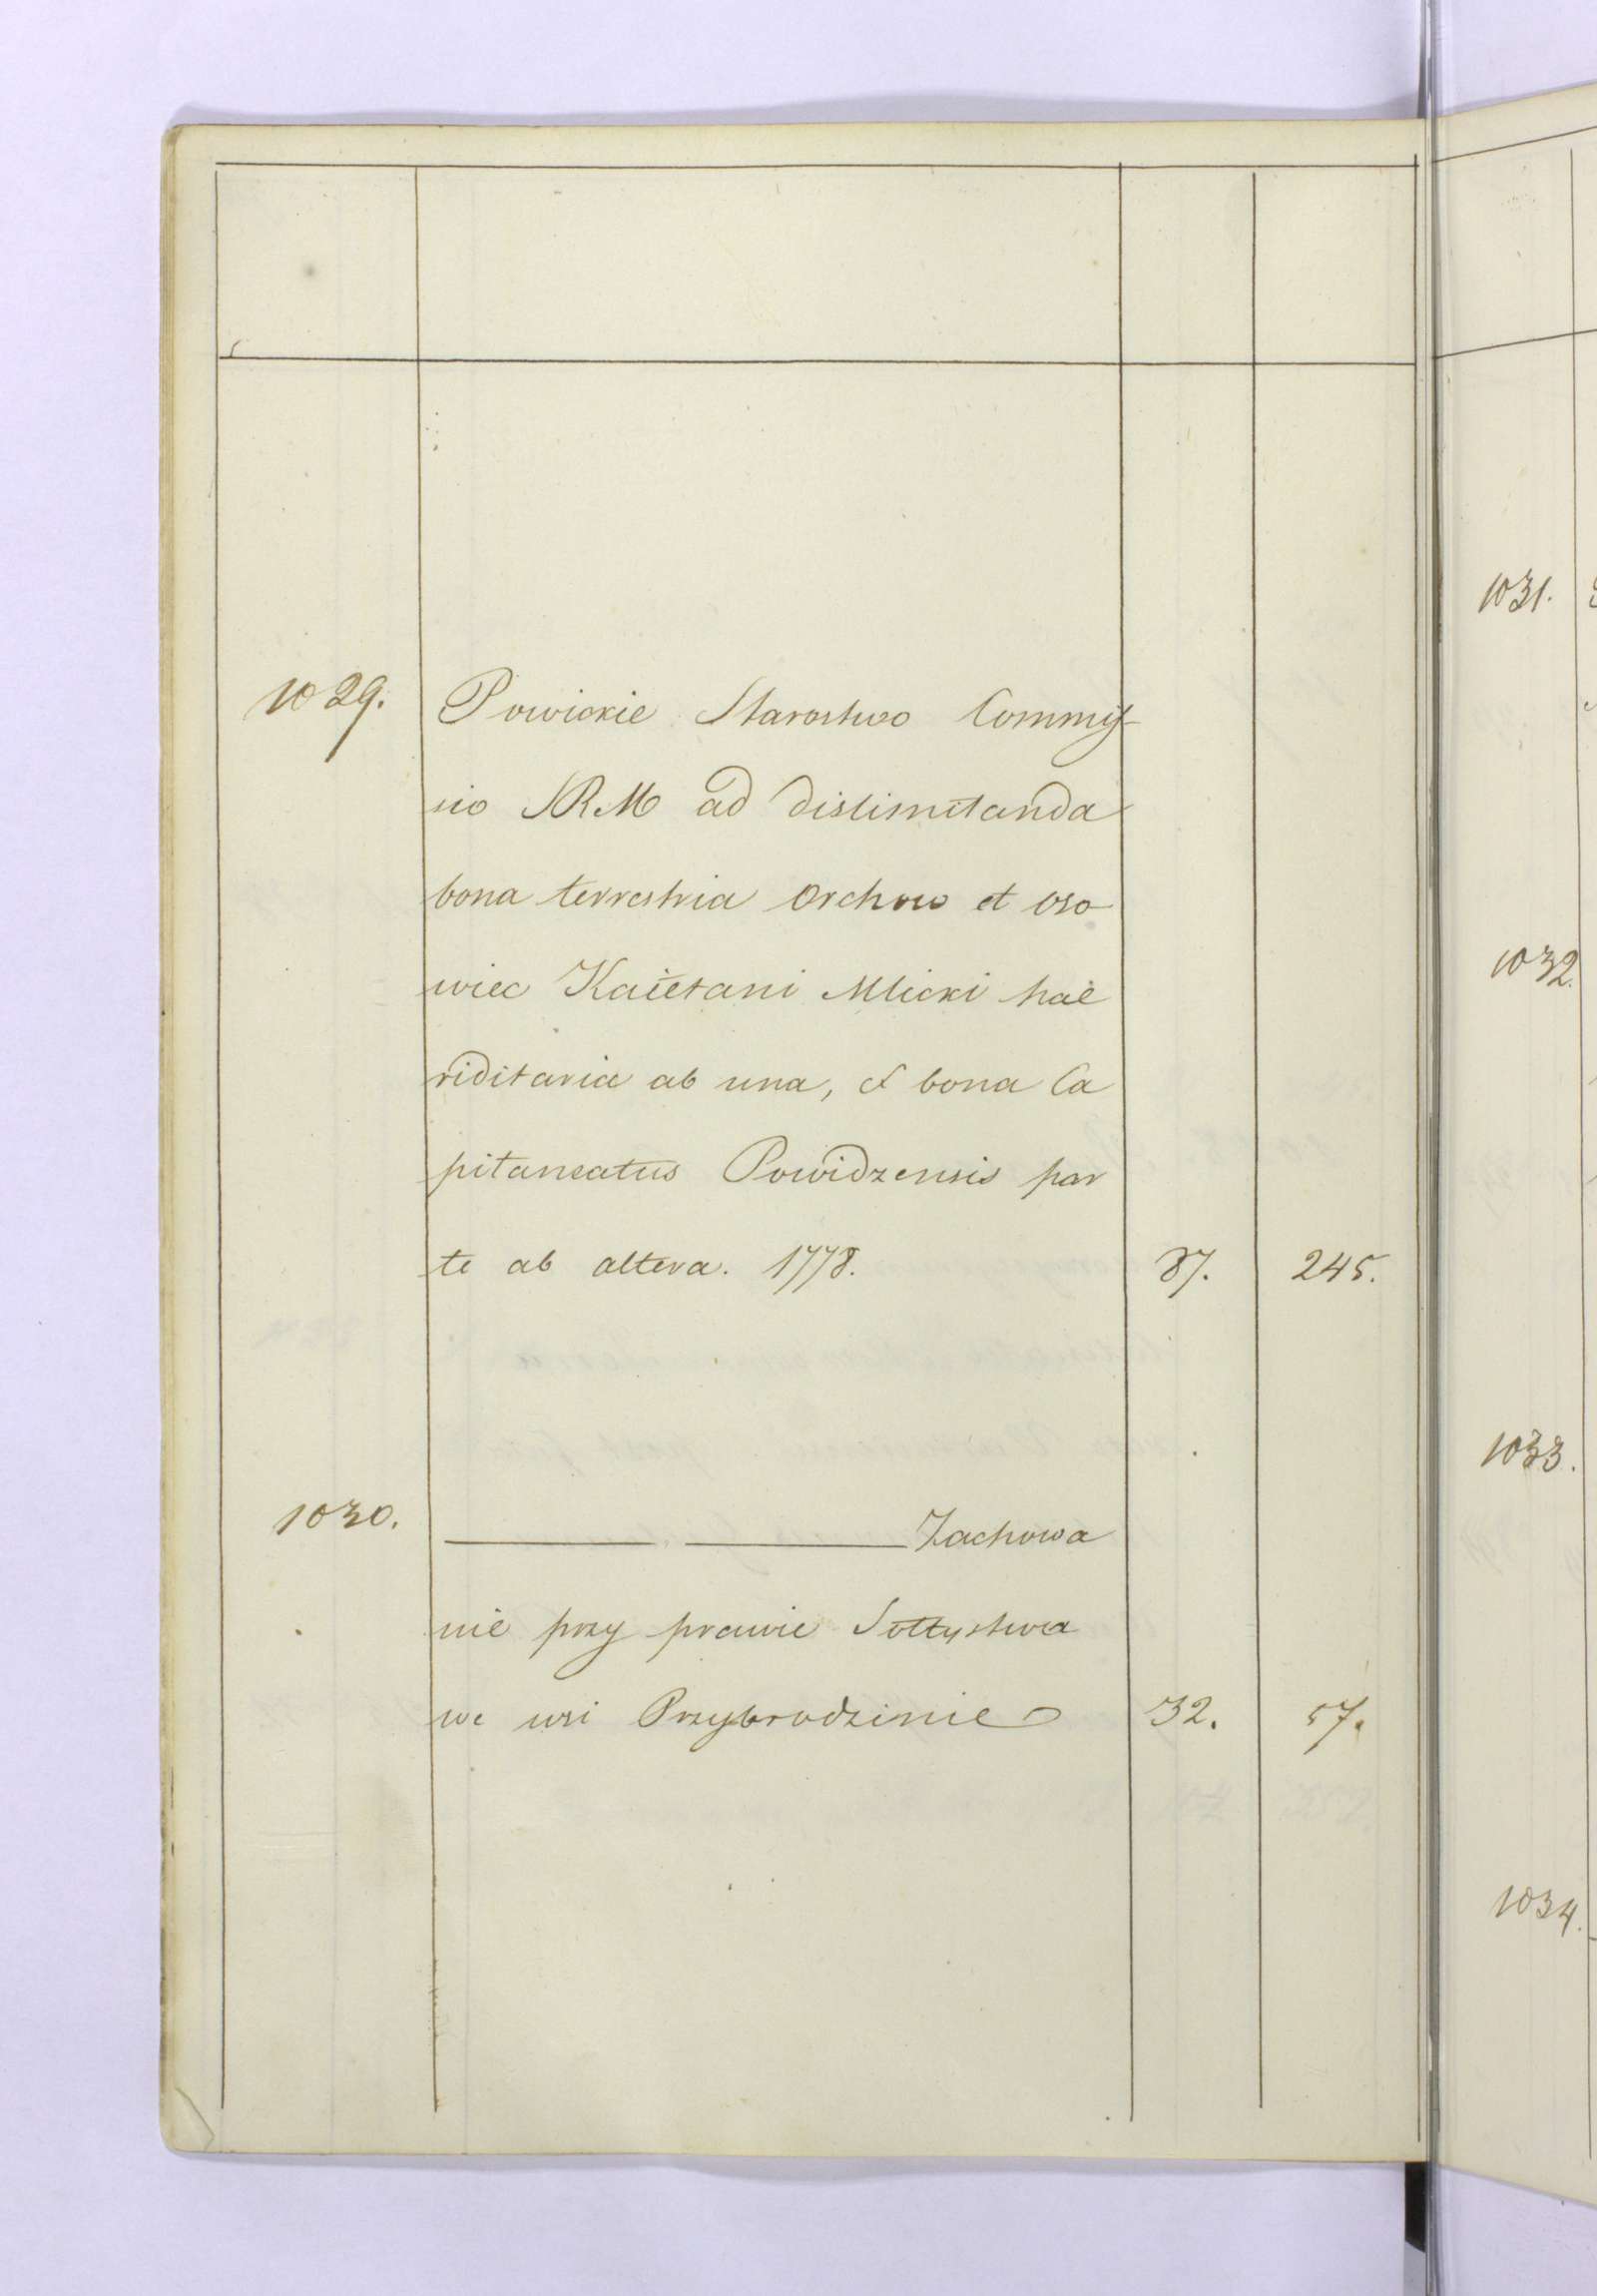 1029. Powickie Starostwo Commis
sio SRM ad dislimitanda
bona terrestria Orchow et Oso
wiec Kaietani Mlicki hae
riditaria ab una, et bona Ca
pitaneatus Powidzensis par
te ab altera. 1778. 87. 245.
1030. Zachowa
nie przy prawie Sołtystwa
we wsi Przybrodzinie 32. 57.
1031.
1032.
1033.
1034.